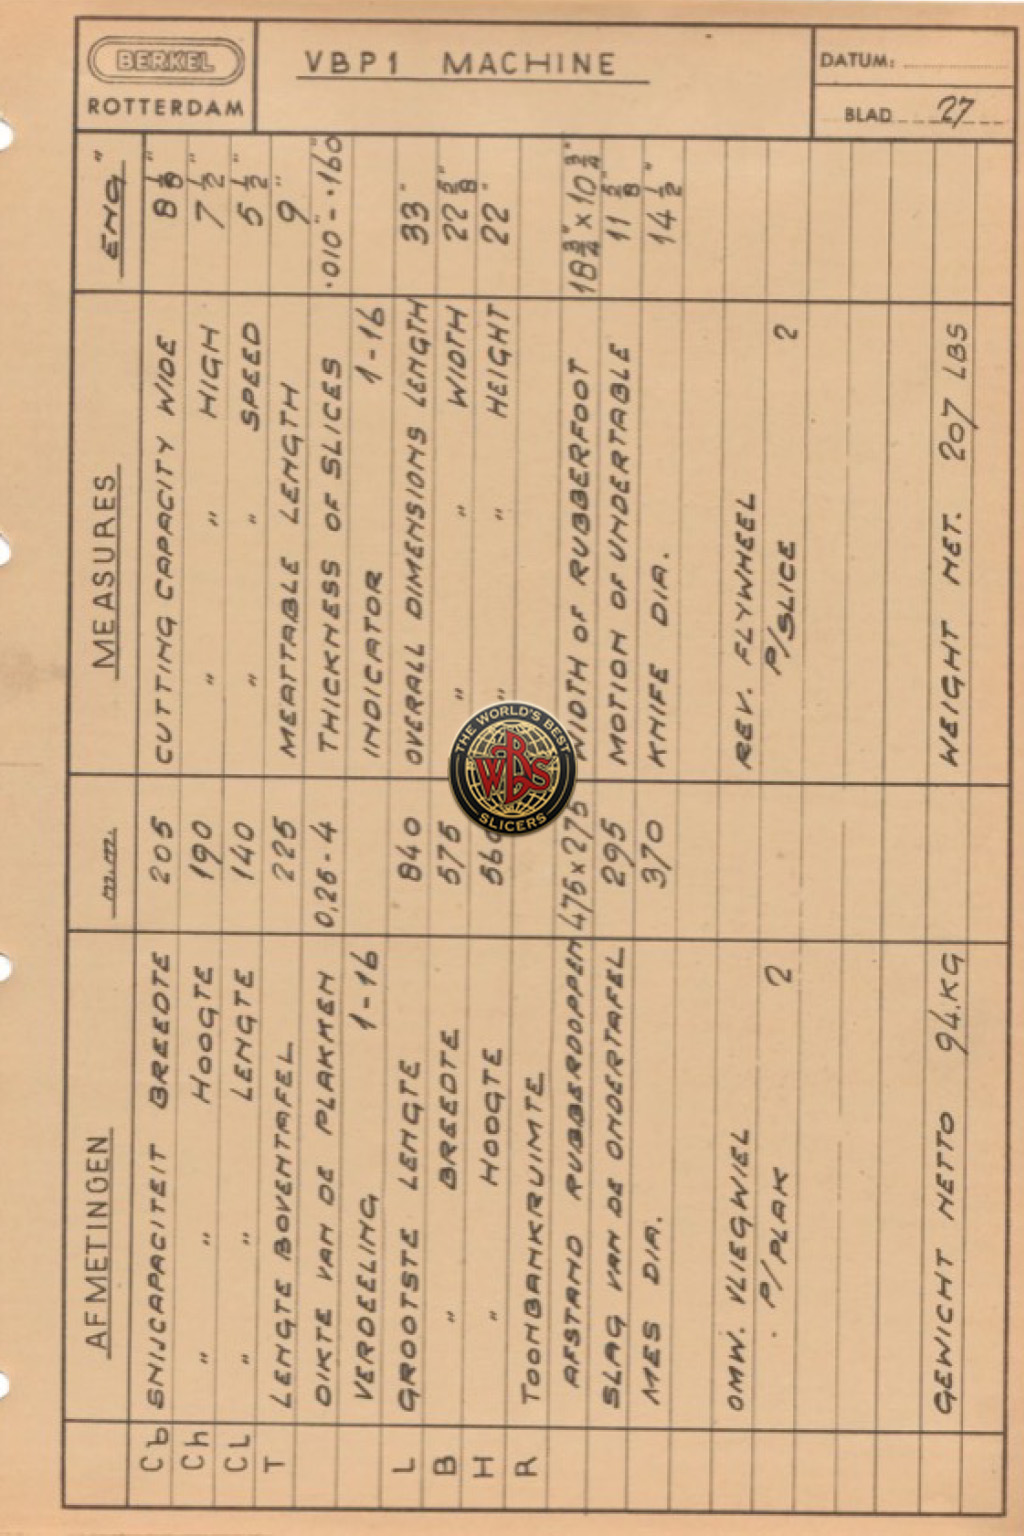 BERKEL
ROTTERDAM
VBP1 MACHINE
DATUM:
BLAD 27
AFMETINGEN m.m. MEASURES ENG "
Cb SNIJCAPACITEIT BREEDTE 205 CUTTING CAPACITY WIDE 8 1/8"
Ch " " HOOGTE 190 " " HIGH 7 1/2"
CL " " LENGTE 140 " " SPEED 5 1/2"
T LENGTE BOVENTAFEL 225 MEATTABLE LENGTH 9"
DIKTE VAN DE PLAKKEN 0,25-4 THICKNESS OF SLICES .010"-.160"
VERDEELING 1-16 INDICATOR 1-16
L GROOTSTE LENGTE 840 OVERALL DIMENSIONS LENGTH 33"
B " BREEDTE 575 " " WIDTH 22 5/8"
H " HOOGTE 560 " " HEIGHT 22"
R TOONBANKRUIMTE
AFSTAND RUBBERDOPPEN 475 x 275 WIDTH OF RUBBERFOOT 18 3/4" x 10 3/4"
SLAG VAN DE ONDERTAFEL 295 MOTION OF UNDERTABLE 11 5/8"
MES DIA. 370 KNIFE DIA. 14 1/2"
OMW. VLIEGWIEL REV. FLYWHEEL
P/PLAK 2 P/SLICE 2
GEWICHT NETTO 94.KG WEIGHT NET. 207 LBS
THE WORLD'S BEST
WBS
SLICERS